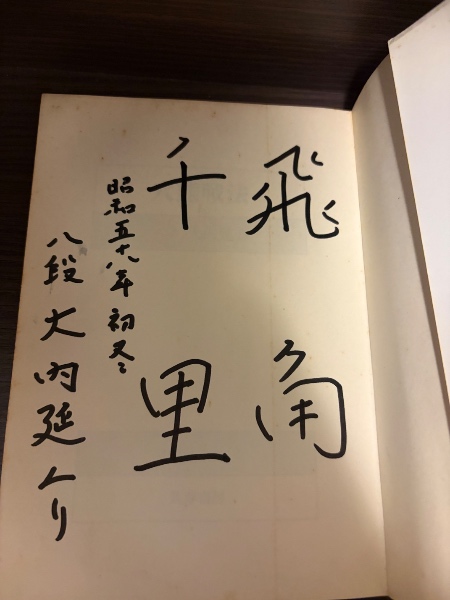 飛角
千里
昭和五十八年初冬
八段大内延介